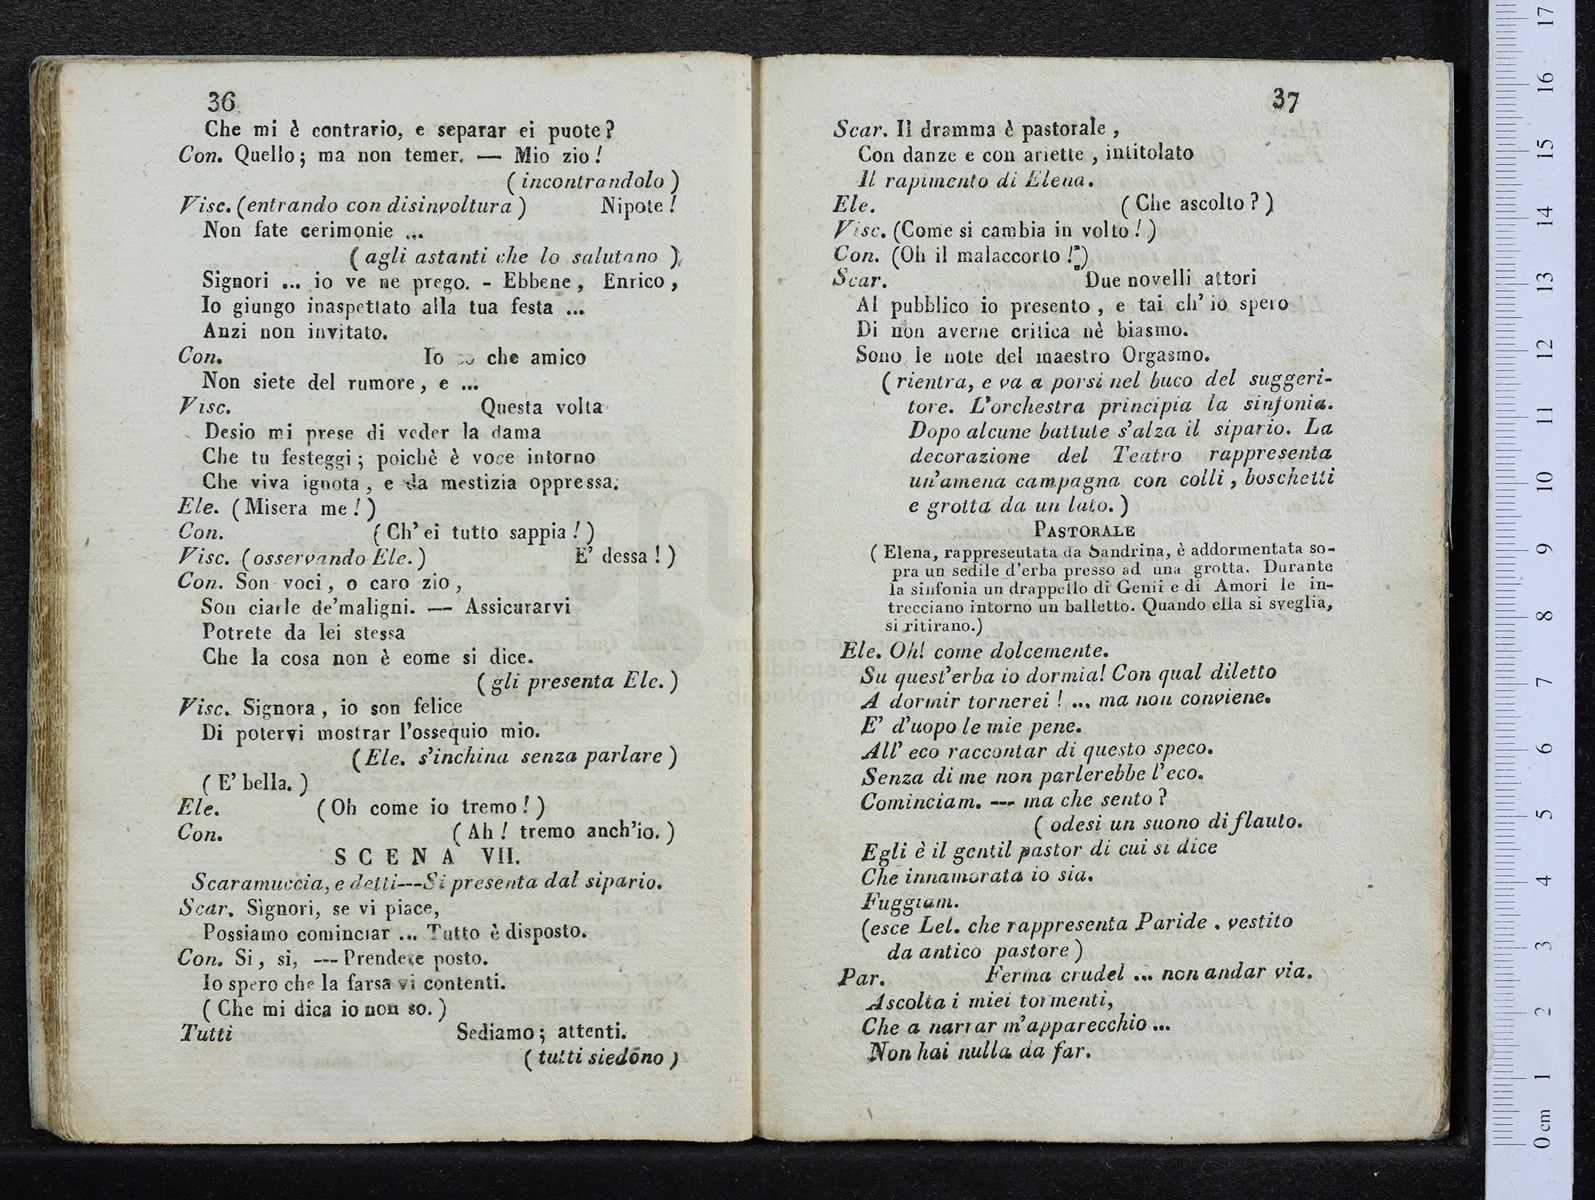 36
Che mi è contrario, e separar ei puote?
Con. Quello; ma non temer. — Mio zio!
(incontrandolo)
Visc. (entrando con disinvoltura) Nipote!
Non fate cerimonie ...
(agli astanti che lo salutano)
Signori ... io ve ne prego. - Ebbene, Enrico,
Io giungo inaspettato alla tua festa ...
Anzi non invitato.
Con. Io so che amico
Non siete del rumore, e ...
Visc. Questa volta
Desio mi prese di veder la dama
Che tu festeggi; poichè è voce intorno
Che viva ignota, e da mestizia oppressa.
Ele. (Misera me!)
Con. (Ch' ei tutto sappia!)
Visc. (osservando Ele.) E' dessa!)
Con. Son voci, o caro zio,
Son ciarle de'maligni. — Assicurarvi
Potrete da lei stessa
Che la cosa non è eome si dice.
(gli presenta Ele.)
Visc. Signora, io son felice
Di potervi mostrar l'ossequio mio.
(Ele. s'inchina senza parlare)
(E' bella.)
Ele. (Oh come io tremo!)
Con. (Ah! tremo anch'io.)
SCENA VII.
Scaramuccia, e detti---Si presenta dal sipario.
Scar. Signori, se vi piace,
Possiamo cominciar ... Tutto è disposto.
Con. Si, si, --- Prendete posto.
Io spero che la farsa vi contenti.
(Che mi dica io non so.)
Tutti Sediamo; attenti.
(tutti siedono)
37
Scar. Il dramma è pastorale,
Con danze e con ariette, intitolato
Il rapimento di Elena.
Ele. (Che ascolto?)
Visc. (Come si cambia in volto!)
Con. (Oh il malaccorto!)
Scar. Due novelli attori
Al pubblico io presento, e tai ch' io spero
Di non averne critica nè biasmo.
Sono le note del maestro Orgasmo.
(rientra, e va a porsi nel buco del suggeri-
tore. L'orchestra principia la sinfonia.
Dopo alcune battute s'alza il sipario. La
decorazione del Teatro rappresenta
un'amena campagna con colli, boschetti
e grotta da un lato.)
PASTORALE
(Elena, rappresentata da Sandrina, è addormentata so-
pra un sedile d'erba presso ad una grotta. Durante
la sinfonia un drappello di Genii e di Amori le in-
trecciano intorno un balletto. Quando ella si sveglia,
si ritirano.)
Ele. Oh! come dolcemente.
Su quest'erba io dormia! Con qual diletto
A dormir tornerei! ... ma non conviene.
E' d'uopo le mie pene.
All' eco raccontar di questo speco.
Senza di me non parlerebbe l'eco.
Cominciam. --- ma che sento?
(odesi un suono di flauto.
Egli è il gentil pastor di cui si dice
Che innamorata io sia.
Fuggiam.
(esce Lel. che rappresenta Paride. vestito
da antico pastore)
Par. Ferma crudel ... non andar via.
Ascolta i miei tormenti,
Che a narrar m'apparecchio ...
Non hai nulla da far.
0 cm 1 2 3 4 5 6 7 8 9 10 11 12 13 14 15 16 17